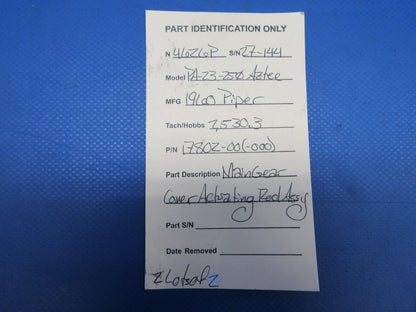 PART IDENTIFICATION ONLY
N 4626P S/N 27-144
Model PA-23-250 Aztec
MFG 1960 Piper
Tach/Hobbs 2,530.3
P/N 17802-00(-000)
Part Description Main Gear
Cover Actuating Rod Assy
Part S/N
Date Removed
2 Lots of 2